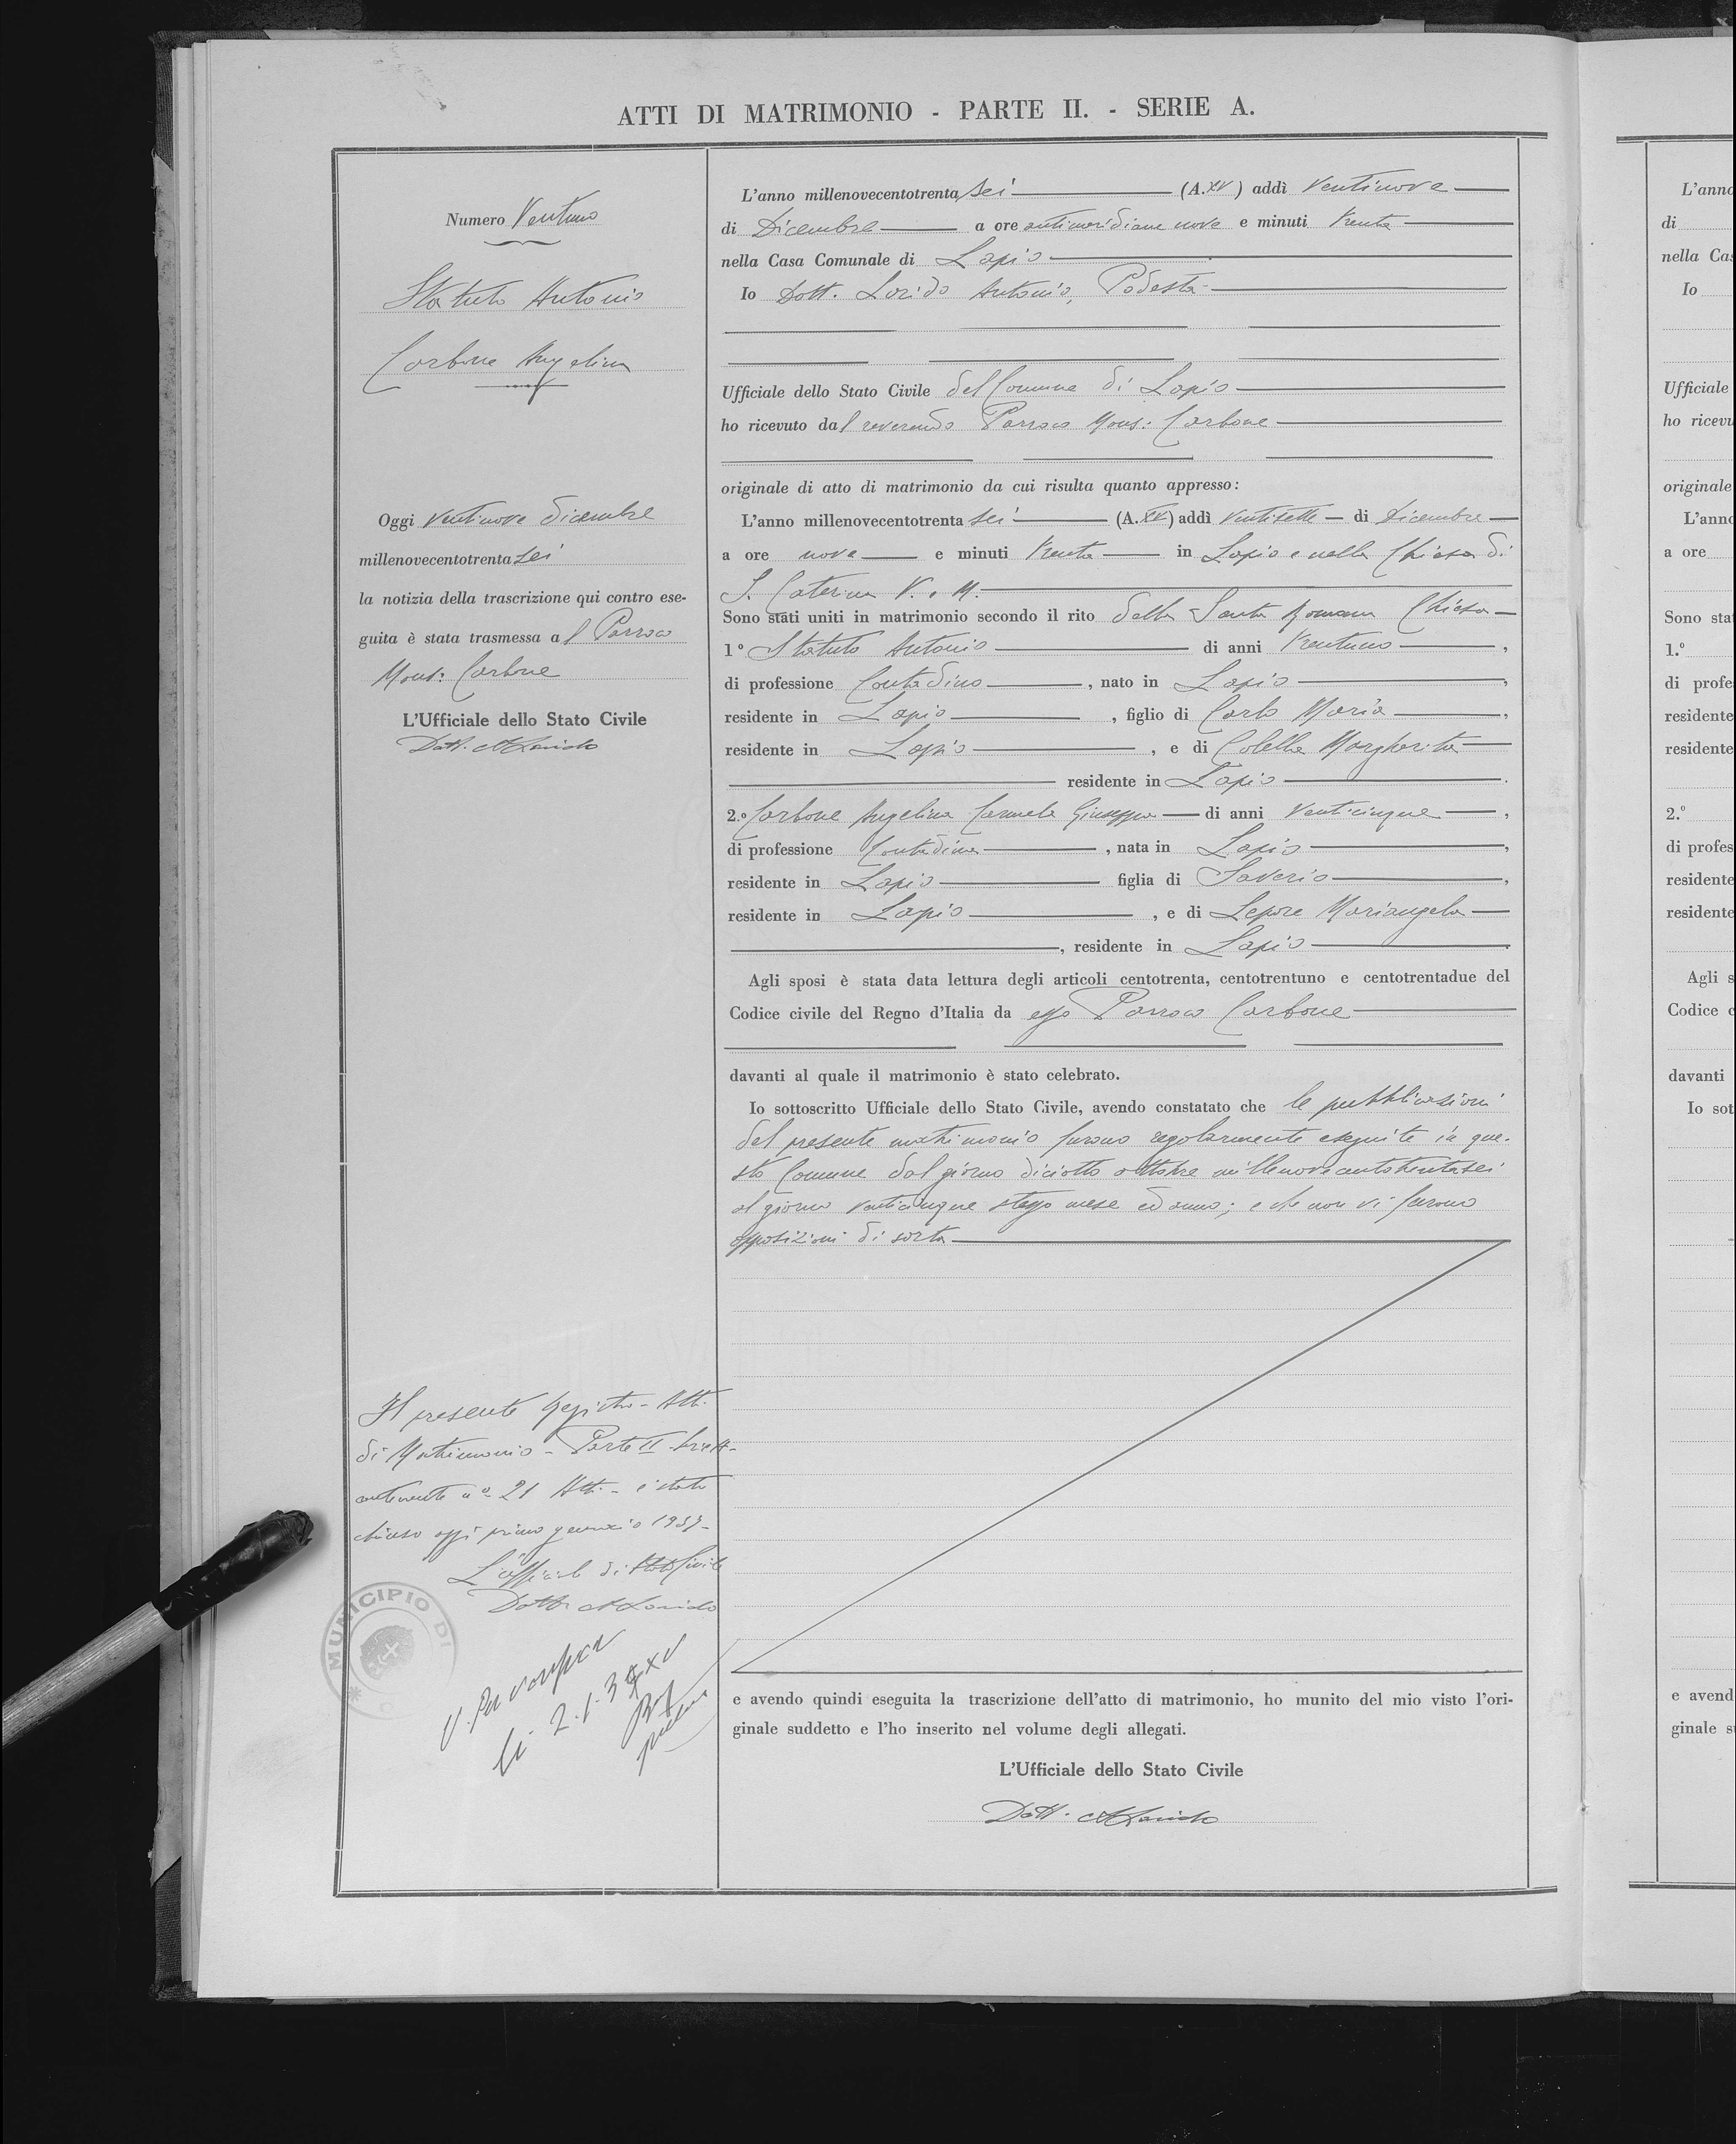 ATTI DI MATRIMONIO - PARTE II. - SERIE A.
Numero Ventuno
Statuto Antonio
Carbone Angelina
Oggi ventinove dicembre
millenovecentotrenta sei
la notizia della trascrizione qui contro ese-
guita è stata trasmessa al Parroco
Mons: Carbone
L'Ufficiale dello Stato Civile
Dott. A Lorido
Il presente Registro - Atti
di Matrimonio - Parte II - Serie A -
contenente n° 21 Atti - è stato
chiuso oggi primo gennaio 1937 -
L'ufficiale di Stato Civile
Dott. A Lorido
MUNICIPIO DI
V. per
li 2.1.37 XV
L'anno millenovecentotrenta sei (A. XV) addì Ventinove
di Dicembre a ore antimeridiane nove e minuti trenta
nella Casa Comunale di Lapio
Io Dott. Lorido Antonio, Podestà
Ufficiale dello Stato Civile del Comune di Lapio
ho ricevuto dal reverendo Parroco Mons: Carbone
originale di atto di matrimonio da cui risulta quanto appresso:
L'anno millenovecentotrenta sei (A. XV) addì Ventisette di Dicembre
a ore nove e minuti trenta in Lapio e nella Chiesa di
S. Caterina V. e M.
Sono stati uniti in matrimonio secondo il rito della Santa Romana Chiesa
1° Statuto Antonio di anni trentuno,
di professione Contadino, nato in Lapio,
residente in Lapio, figlio di Carlo Maria,
residente in Lapio, e di Colella Margherita
residente in Lapio.
2.° Carbone Angelina Carmela Giuseppa di anni venticinque,
di professione Contadina, nata in Lapio,
residente in Lapio figlia di Saverio,
residente in Lapio, e di Lepore Mariangela
, residente in Lapio.
Agli sposi è stata data lettura degli articoli centotrenta, centotrentuno e centotrentadue del
Codice civile del Regno d'Italia da esso Parroco Carbone
davanti al quale il matrimonio è stato celebrato.
Io sottoscritto Ufficiale dello Stato Civile, avendo constatato che le pubblicazioni
del presente matrimonio furono regolarmente eseguite in que-
sto Comune dal giorno diciotto ottobre millenovecentotrentasei
al giorno venticinque stesso mese ed anno; e che non vi furono
opposizioni di sorta
e avendo quindi eseguita la trascrizione dell'atto di matrimonio, ho munito del mio visto l'ori-
ginale suddetto e l'ho inserito nel volume degli allegati.
L'Ufficiale dello Stato Civile
Dott. A Lorido
L'anno
di
nella Cas
Io
Ufficiale
ho ricevu
originale
L'anno
a ore
Sono stat
1.°
di profe
residente
residente
2.°
di profes
residente
residente
Agli s
Codice c
davanti
Io sot
e avend
ginale s